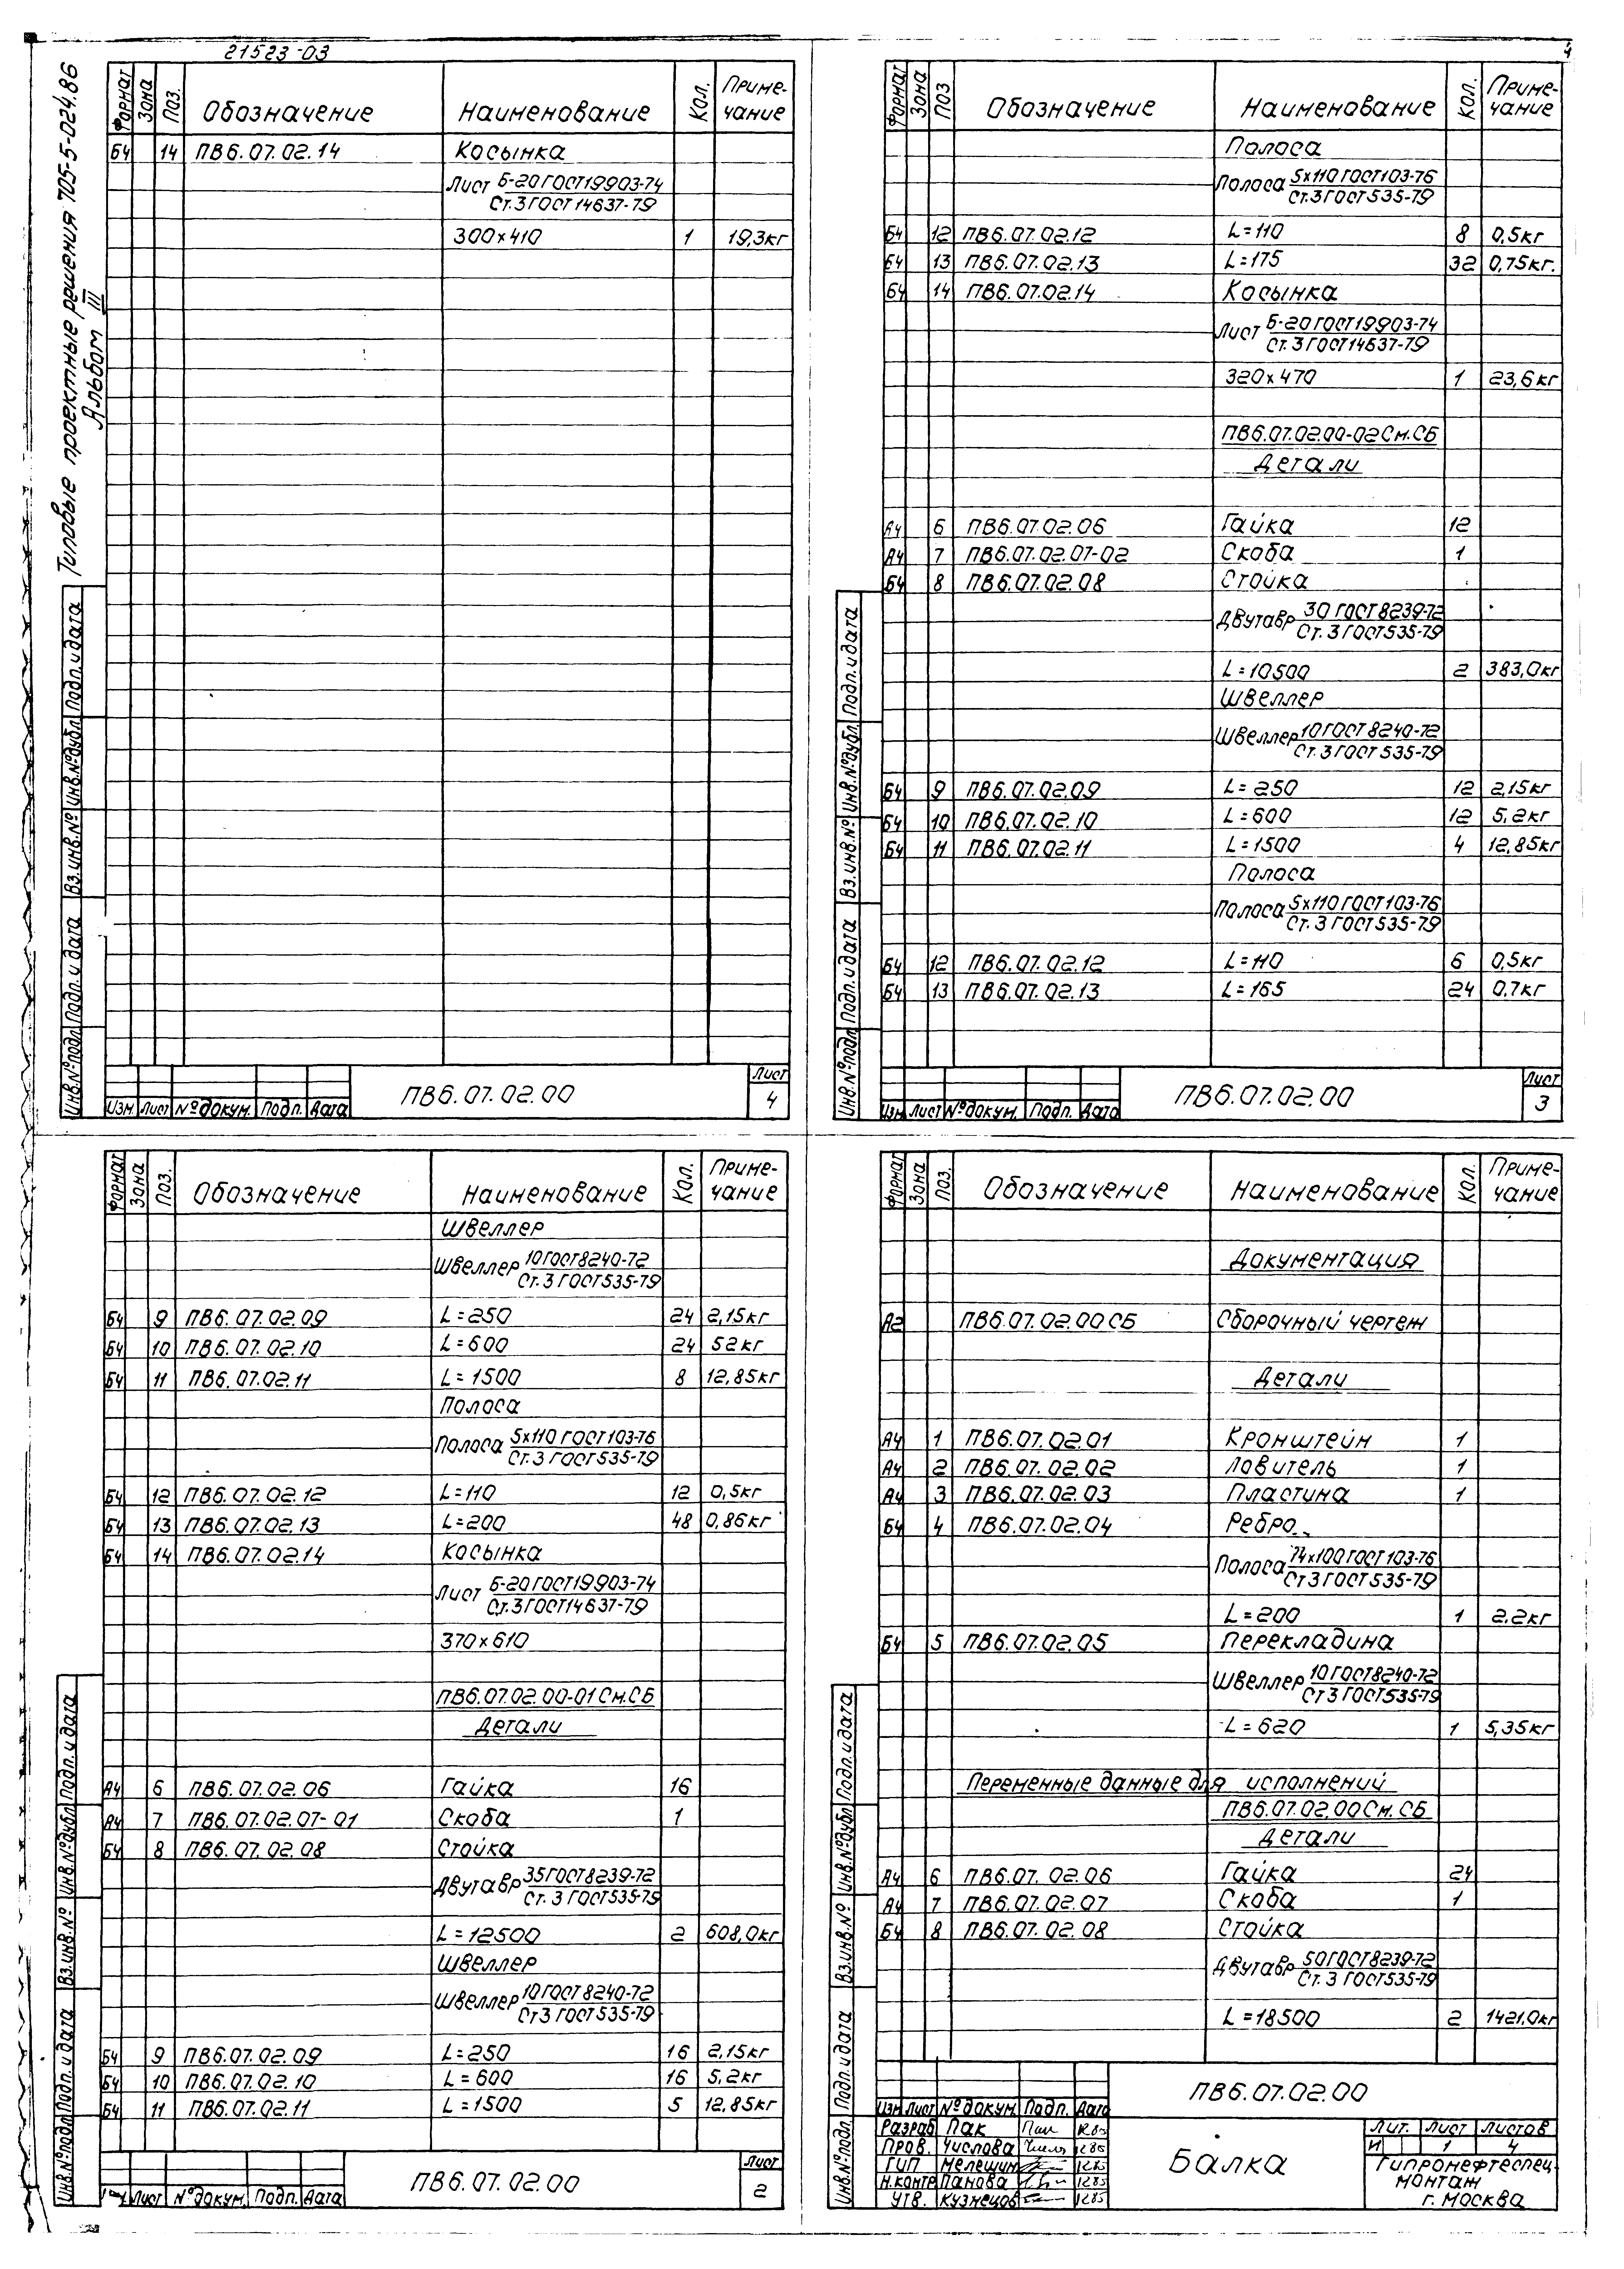 21523-03
4
Типовые проектные решения 705-5-024.86
Альбом III
Формат Зона Поз. Обозначение Наименование Кол. Примечание
Б4 14 ПВ6.07.02.14 Косынка
Лист Б-20 ГОСТ 19903-74
Ст.3 ГОСТ 14637-79
300х410 1 19,3кг
Инв.№ подл. Подп. и дата Вз.инв.№ Инв.№ дубл. Подп. и дата
Изм. Лист № докум. Подп. Дата
ПВ6.07.02.00
Лист
4
Формат Зона Поз Обозначение Наименование Кол. Примечание
Полоса
Полоса 5х110 ГОСТ 103-76
Ст.3 ГОСТ 535-79
Б4 12 ПВ6.07.02.12 L=110 8 0,5кг
Б4 13 ПВ6.07.02.13 L=175 32 0,75кг.
Б4 14 ПВ6.07.02.14 Косынка
Лист Б-20 ГОСТ 19903-74
Ст.3 ГОСТ 14637-79
320х470 1 23,6кг
ПВ6.07.02.00-02 См.СБ
Детали
А4 6 ПВ6.07.02.06 Гайка 12
А4 7 ПВ6.07.02.07-02 Скоба 1
Б4 8 ПВ6.07.02.08 Стойка
Двутавр 30 ГОСТ 8239-72
Ст.3 ГОСТ 535-79
L=10500 2 383,0кг
Швеллер
Швеллер 10 ГОСТ 8240-72
Ст.3 ГОСТ 535-79
Б4 9 ПВ6.07.02.09 L=250 12 2,15кг
Б4 10 ПВ6.07.02.10 L=600 12 5,2кг
Б4 11 ПВ6.07.02.11 L=1500 4 12,85кг
Полоса
Полоса 5х110 ГОСТ 103-76
Ст.3 ГОСТ 535-79
Б4 12 ПВ6.07.02.12 L=110 6 0,5кг
Б4 13 ПВ6.07.02.13 L=165 24 0,7кг
Инв.№ подл. Подп. и дата Вз.инв.№ Инв.№ дубл. Подп. и дата
Изм Лист № докум. Подп. Дата
ПВ6.07.02.00
Лист
3
Формат Зона Поз. Обозначение Наименование Кол. Примечание
Швеллер
Швеллер 10 ГОСТ 8240-72
Ст.3 ГОСТ 535-79
Б4 9 ПВ6.07.02.09 L=250 24 2,15кг
Б4 10 ПВ6.07.02.10 L=600 24 52кг
Б4 11 ПВ6.07.02.11 L=1500 8 12,85кг
Полоса
Полоса 5х110 ГОСТ 103-76
Ст.3 ГОСТ 535-79
Б4 12 ПВ6.07.02.12 L=110 12 0,5кг
Б4 13 ПВ6.07.02.13 L=200 48 0,86кг
Б4 14 ПВ6.07.02.14 Косынка
Лист Б-20 ГОСТ 19903-74
Ст.3 ГОСТ 14637-79
370х610
ПВ6.07.02.00-01 См.СБ
Детали
А4 6 ПВ6.07.02.06 Гайка 16
А4 7 ПВ6.07.02.07-01 Скоба 1
Б4 8 ПВ6.07.02.08 Стойка
Двутавр 35 ГОСТ 8239-72
Ст.3 ГОСТ 535-79
L=12500 2 608,0кг
Швеллер
Швеллер 10 ГОСТ 8240-72
Ст3 ГОСТ 535-79
Б4 9 ПВ6.07.02.09 L=250 16 2,15кг
Б4 10 ПВ6.07.02.10 L=600 16 5,2кг
Б4 11 ПВ6.07.02.11 L=1500 5 12,85кг
Инв.№ подл. Подп. и дата Вз.инв.№ Инв.№ дубл. Подп. и дата
Лист № докум. Подп. Дата
ПВ6.07.02.00
Лист
2
Формат Зона Поз. Обозначение Наименование Кол. Примечание
Документация
А2 ПВ6.07.02.00 СБ Сборочный чертеж
Детали
А4 1 ПВ6.07.02.01 Кронштейн 1
А4 2 ПВ6.07.02.02 Ловитель 1
А4 3 ПВ6.07.02.03 Пластина 1
Б4 4 ПВ6.07.02.04 Ребро
Полоса 14х100 ГОСТ 103-76
Ст3 ГОСТ 535-79
L=200 1 2.2кг
Б4 5 ПВ6.07.02.05 Перекладина
Швеллер 10 ГОСТ 8240-72
Ст3 ГОСТ 535-79
L=620 1 5,35кг
Переменные данные для исполнений
ПВ6.07.02.00 См.СБ
Детали
А4 6 ПВ6.07.02.06 Гайка 24
А4 7 ПВ6.07.02.07 Скоба 1
Б4 8 ПВ6.07.02.08 Стойка
Двутавр 50 ГОСТ 8239-72
Ст.3 ГОСТ 535-79
L=18500 2 1421,0кг
Инв.№ подл. Подп. и дата Вз.инв.№ Инв.№ дубл. Подп. и дата
ПВ6.07.02.00
Изм Лист № докум. Подп. Дата
Разраб Пак
Пров. Числова 1285
ГИП Мелешин 1285
Н.контр Панова 1285
Утв. Кузнецов 1285
Балка
Лит. Лист Листов
И 1 4
Гипронефтеспец-
монтаж
г. Москва